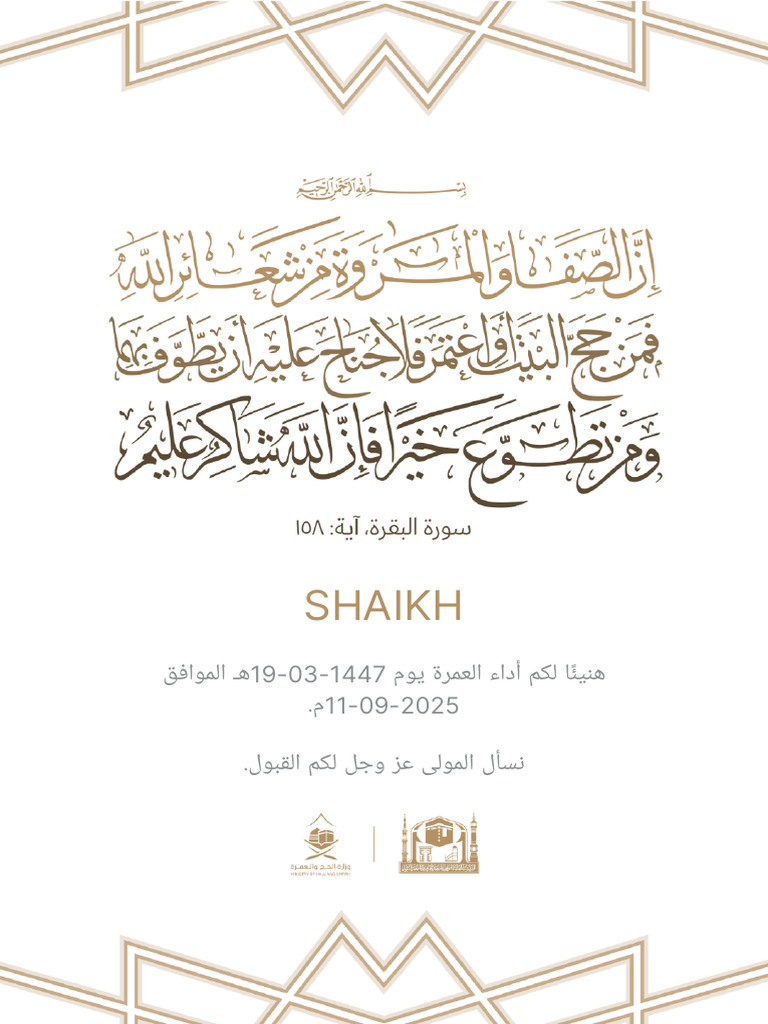 بِسْمِ ٱللَّهِ ٱلرَّحْمَٰنِ ٱلرَّحِيمِ
إِنَّ الصَّفَا وَالْمَرْوَةَ مِن شَعَائِرِ اللَّهِ
فَمَنْ حَجَّ الْبَيْتَ أَوِ اعْتَمَرَ فَلَا جُنَاحَ عَلَيْهِ أَن يَطَّوَّفَ بِهِمَا
وَمَن تَطَوَّعَ خَيْرًا فَإِنَّ اللَّهَ شَاكِرٌ عَلِيمٌ
سورة البقرة، آية: ١٥٨
SHAIKH
هنيئًا لكم أداء العمرة يوم 1447-03-19هـ الموافق
2025-09-11م.
نسأل المولى عز وجل لكم القبول.
وزارة الحج والعمرة
MINISTRY OF HAJJ AND UMRAH